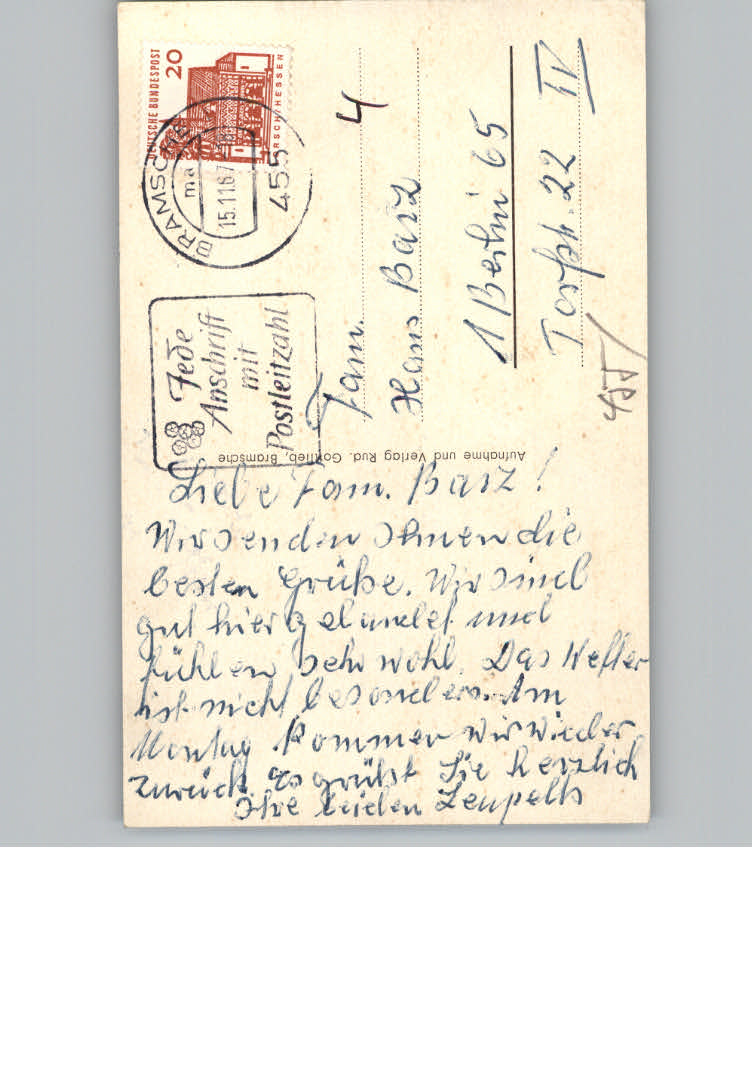 DEUTSCHE BUNDESPOST
20
LORSCH/HESSEN
BRAMSCHE
ma
15.11.67
455
Jede
Anschrift
mit
Postleitzahl
4
Fam.
Hans Barz
1 Berlin 65
Torfstr. 22 IV
Aufnahme und Verlag Rud. Gottlieb, Bramsche
Liebe Fam. Barz!
Wir senden Ihnen die
besten Grüße. Wir sind
gut hier gelandet und
fühlen sehr wohl. Das Wetter
ist nicht besonders. Am
Montag kommen wir wieder
zurück. Es grüßt Sie herzlich
Ihre beiden Leupelts